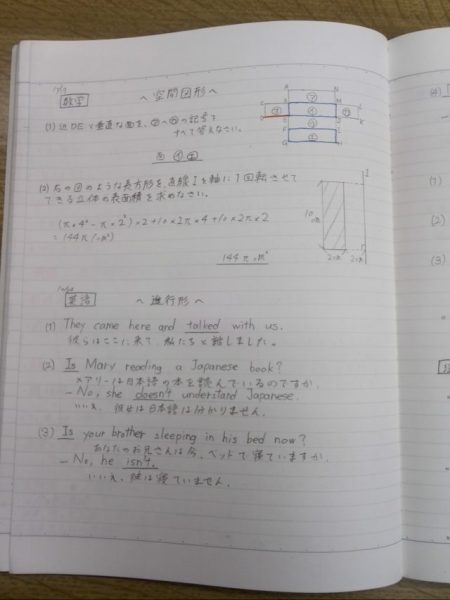 数学 〜空間図形〜
(1) 辺DEと垂直な面を、㋐〜㋕の記号で
すべて答えなさい。
(2) 右の図のような長方形を、直線ℓを軸に1回転させて
できる立体の表面積を求めなさい。
(π×4² - π×2²)×2+10×2π×4+10×2π×2
=144π(cm²)
144π cm²
10cm
2cm 2cm
英語 〜進行形〜
(1) They came here and talked with us.
彼らはここに来て、私たちと話しました。
(2) Is Mary reading a Japanese book?
メアリーは日本語の本を読んでいるのですか。
– No, she doesn't understand Japanese.
いいえ、彼女は日本語は分かりません。
(3) Is your brother sleeping in his bed now?
あなたのお兄さんは今、ベッドで寝ていますか。
– No, he isn't.
いいえ、彼は寝ていません。
(1)
(2)
(3)